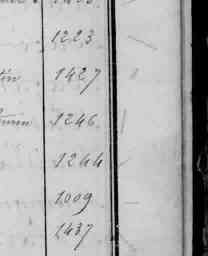 1223
tin 1427
1246
1244
1009
1437